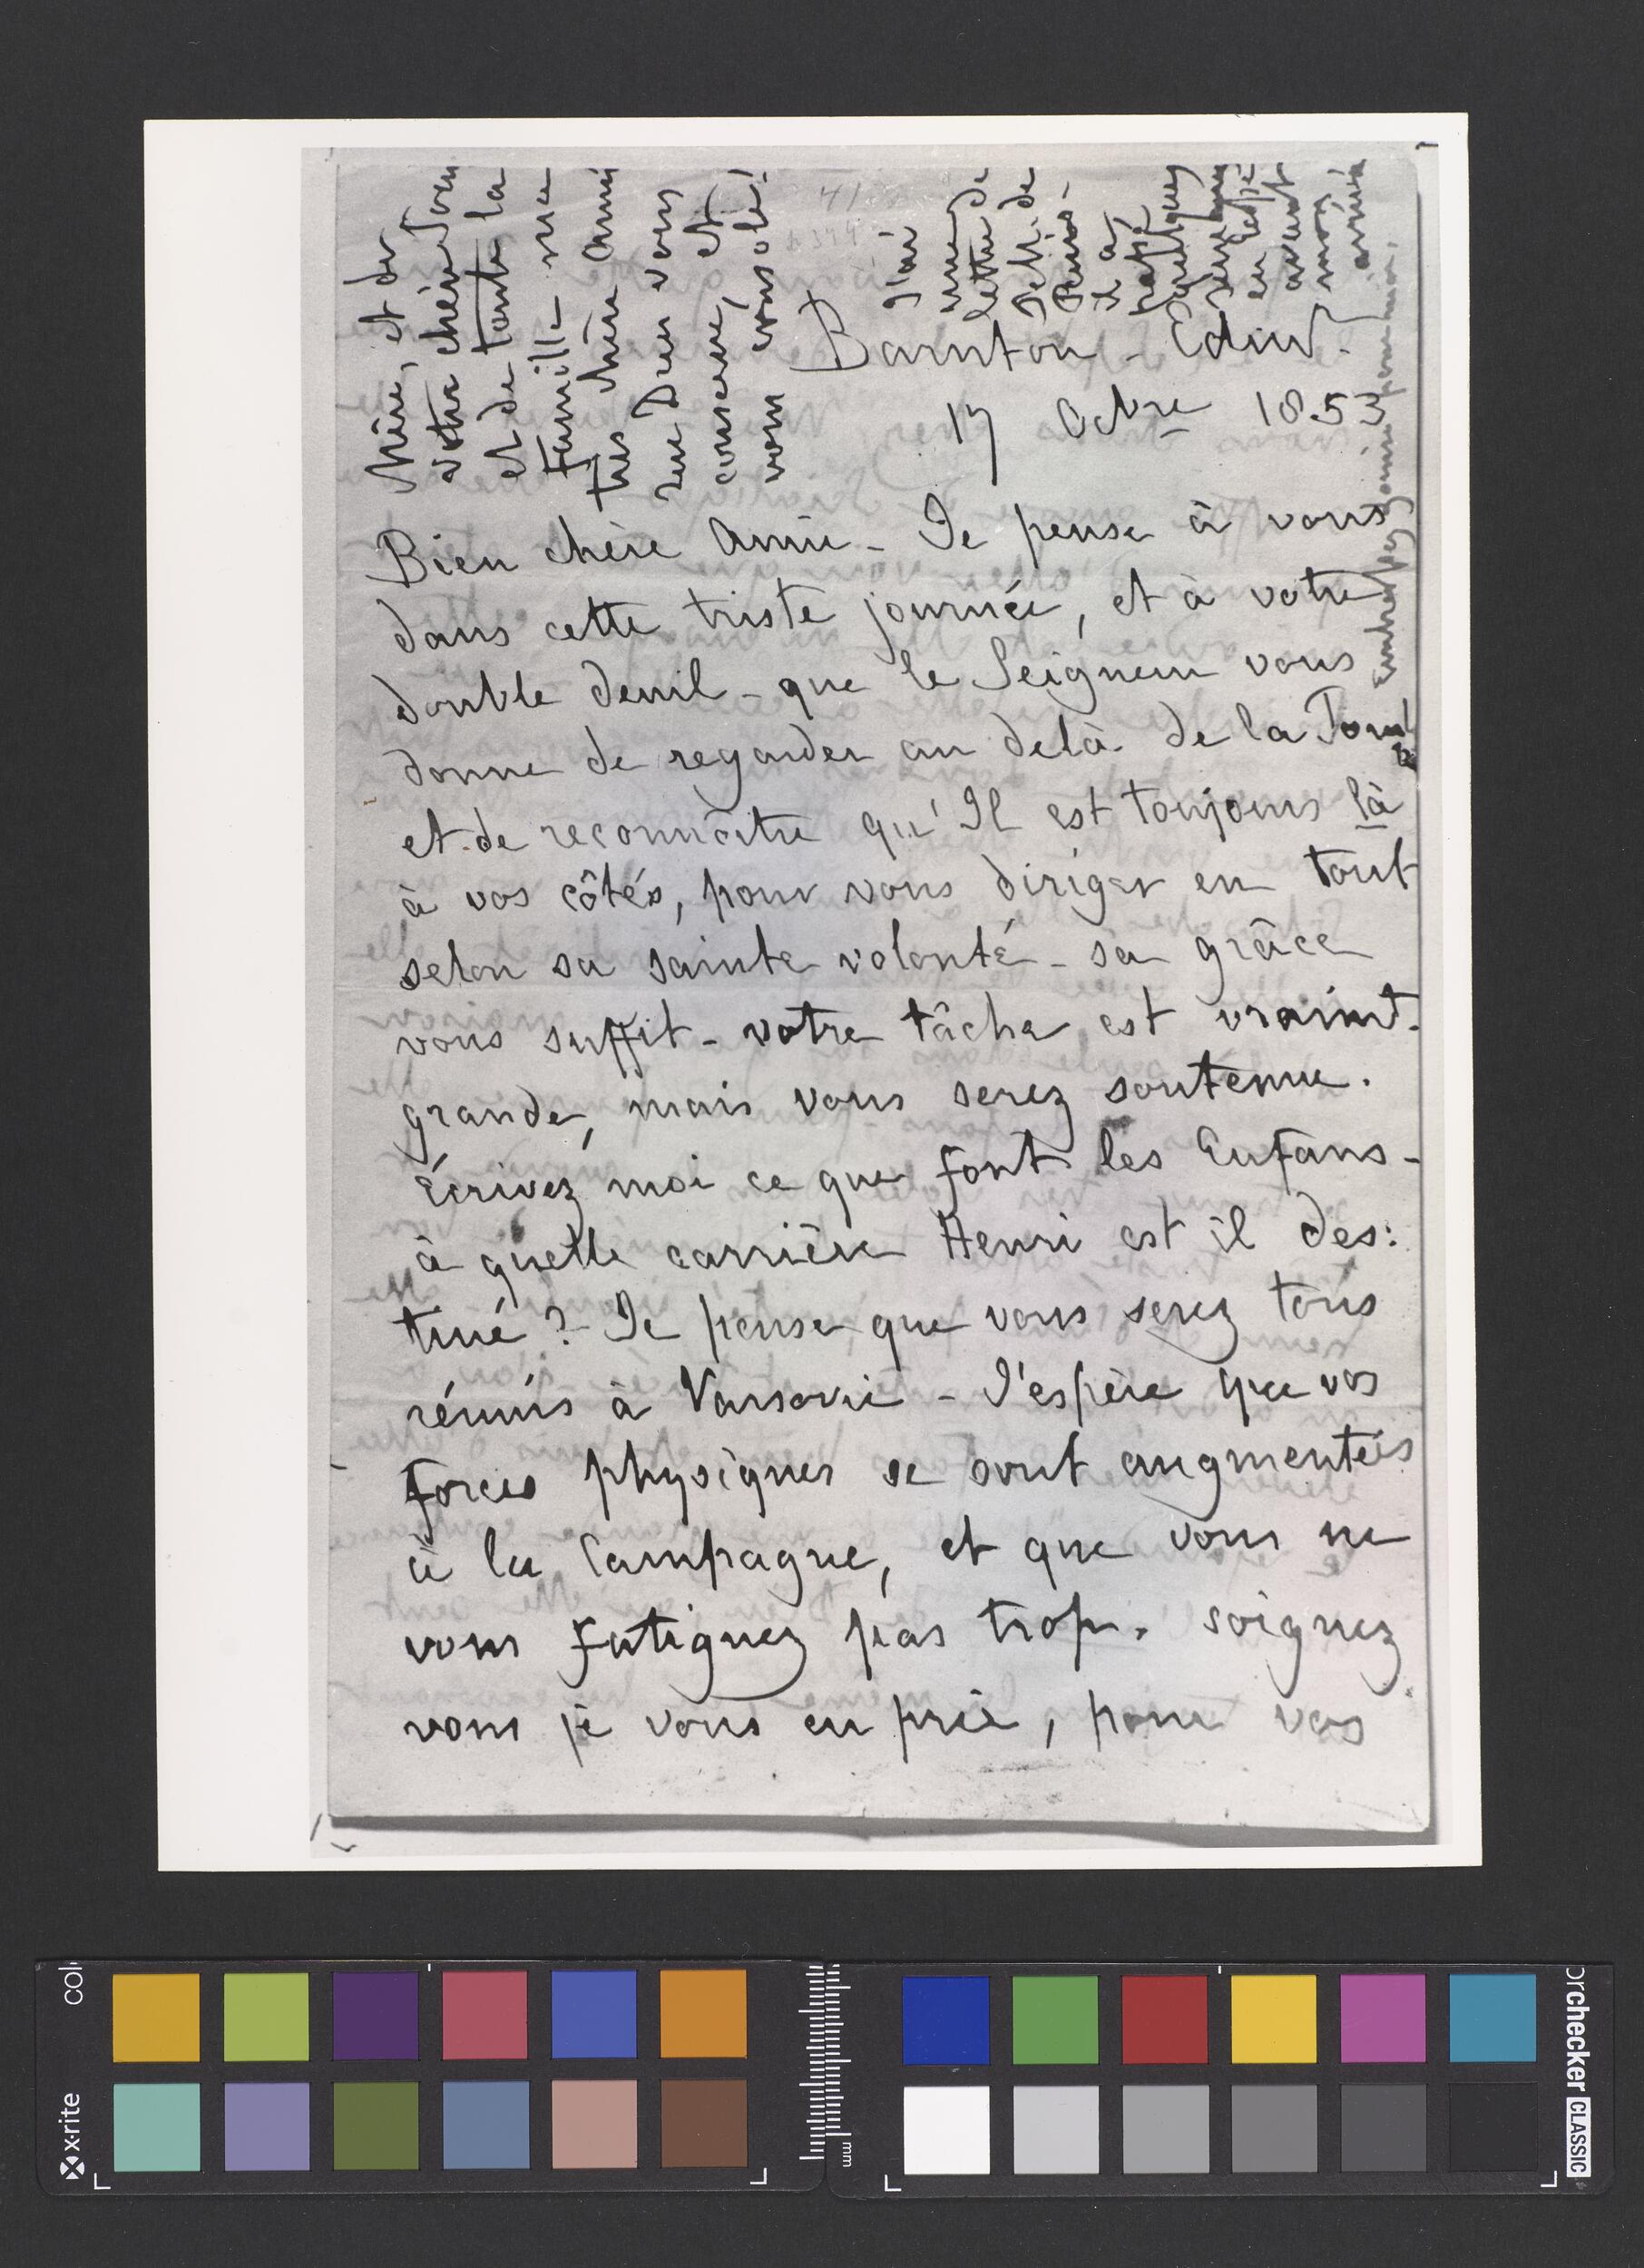 Barnton - Edinb.
17 Octbre 1853
Bien chère Amie - Je pense à vous
dans cette triste journée, et à votre
double deuil - que le Seigneur vous
donne de regarder au delà de la Tombe
et de reconnaître qu'Il est toujours là
à vos côtés, pour vous diriger en tout
selon sa sainte volonté - sa grâce
vous suffit - votre tâche est vraimt.
grande, mais vous serez soutenue.
Ecrivez moi ce que font les Enfans -
à quelle carrière Henri est il des:
tiné ? - Je pense que vous serez tous
réunis à Varsovie - J'espère que vos
forces physiques se sont augmentées
à la Campagne, et que vous ne
vous fatiguez pas trop. soignez
vous je vous en prie, pour vos
Mère, et de
votre chère
et de toute la
famille ma
très chère Amie
que Dieu vous
conserve, et
vous console!
J'ai
une
lettre de
Delle. de
Paris -
il a
passé
quelques
semaines
en
avant
mon
arrivée
x-rite
colo
orchecker CLASSIC
mm